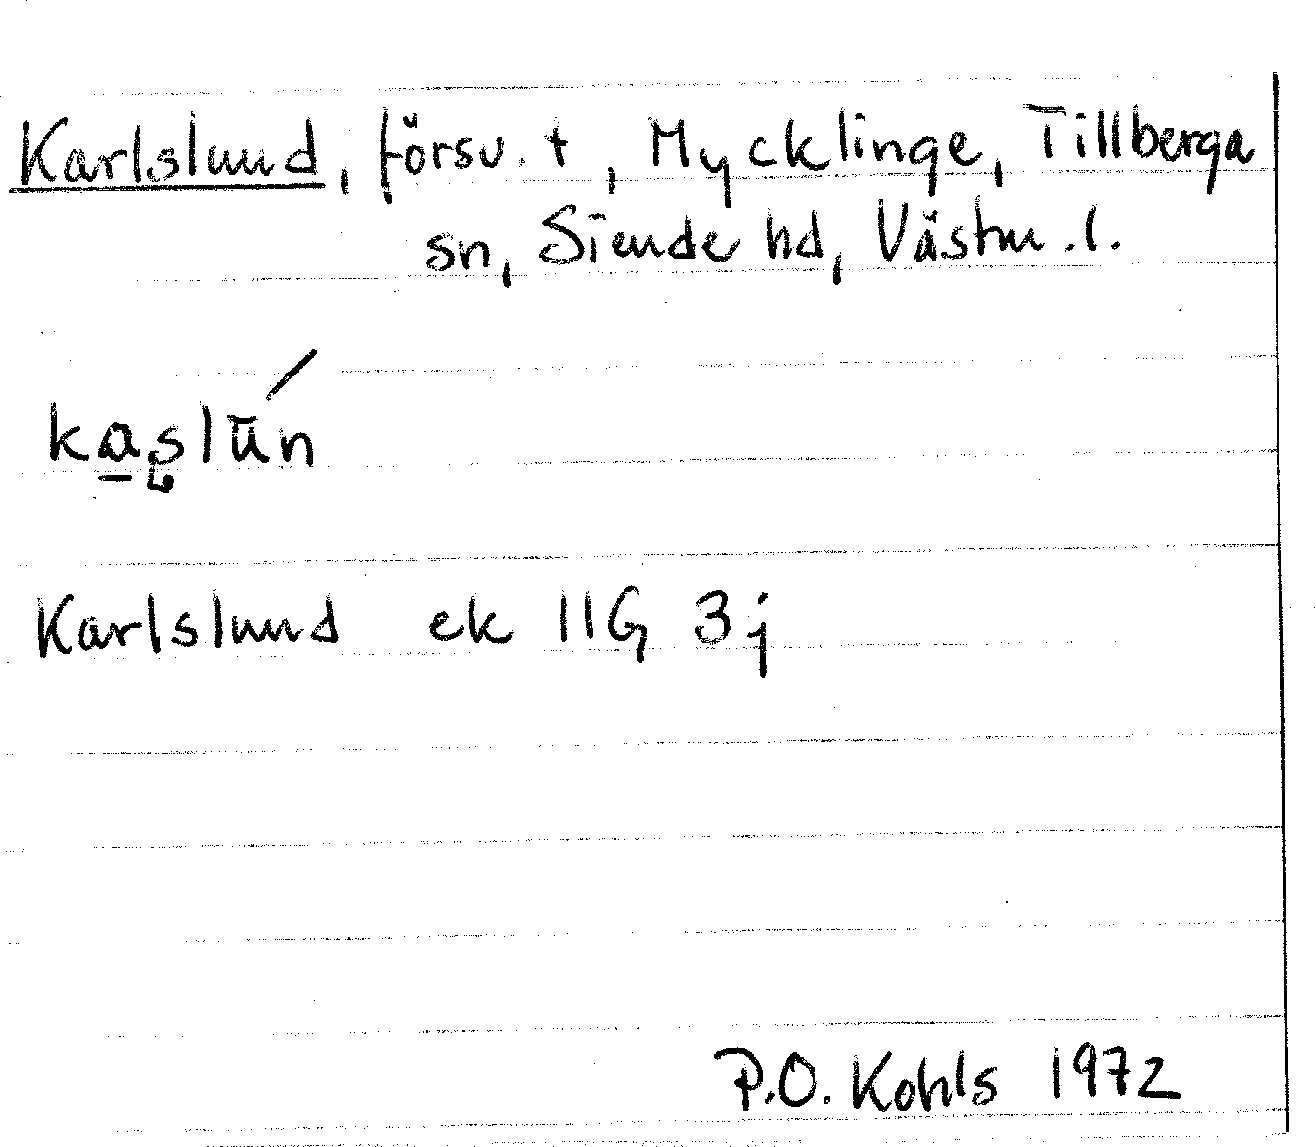 Karlslund, försv. t, Mycklinge, Tillberga
sn, Siende hd, Västm. l.
ka̱slūń
Karlslund ek 11G 3j
P.O. Kohls 1972